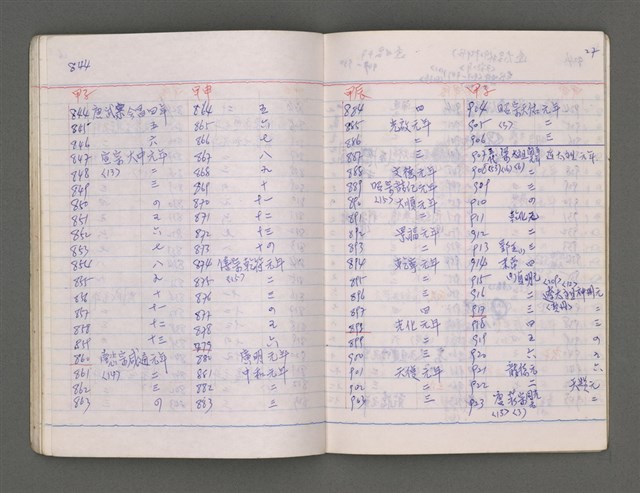 844
甲子
844 唐武宗會昌四年
845 五
846 六
847 宣宗大中元年
848 (13) 二
849 三
850 の
851 五
852 六
853 七
854 八
855 九
856 十
857 十一
858 十二
859 十三
860 懿宗咸通元年
861 (14) 二
862 三
863 の
甲申
864 五
865 六
866 七
867 八
868 九
869 十
870 十一
871 十二
872 十三
873 十の
874 僖宗乾符元年
875 (15) 二
876 三
877 の
878 五
879 六
880 廣明元年
881 中和元年
882 二
883 三
甲辰
884 四
885 光啟元年
886 二
887 三
888 文德元年
889 昭宗龍紀元年
890 (15) 大順元年
891 二
892 景福元年
893 二
894 乾寧元年
895 二
896 三
897 四
898 光化元年
899 二
900 三
901 天復元年
902 二
903 三
27
甲子
904 昭宗天佑元年
905 二
906 三
907
908
909 三
910 の
911 乾化元
912 二
913 三
914 四
915 貞明元
916 二
917 三
918 四
919 五
920 六
921 龍德元
922 二 天贊元
923 唐莊宗
(15) (3) 二